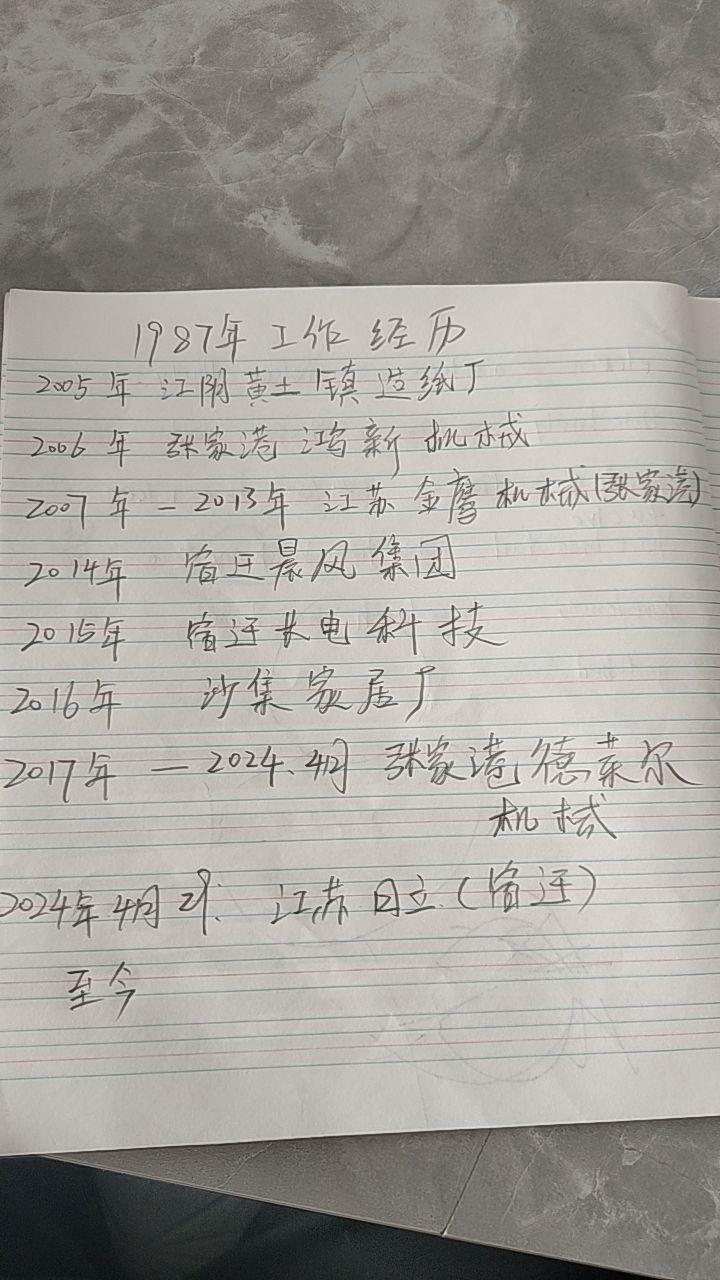 1987年 工作 经历
2005年 江阴黄土镇造纸厂
2006年 张家港鸿新机械
2007年－2013年 江苏金鹰机械(张家港)
2014年 宿迁晨风集团
2015年 宿迁长电科技
2016年 沙集家居厂
2017年－2024.4月 张家港德莱尔
机械
2024年4月 江苏日立(宿迁)
至今